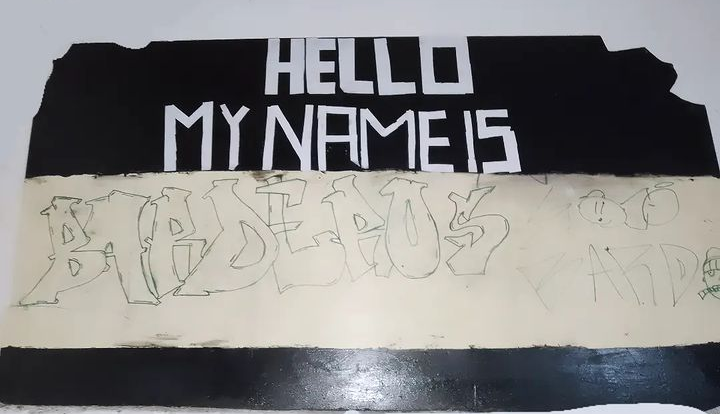 HELLO
MY NAME IS
BARDEROS